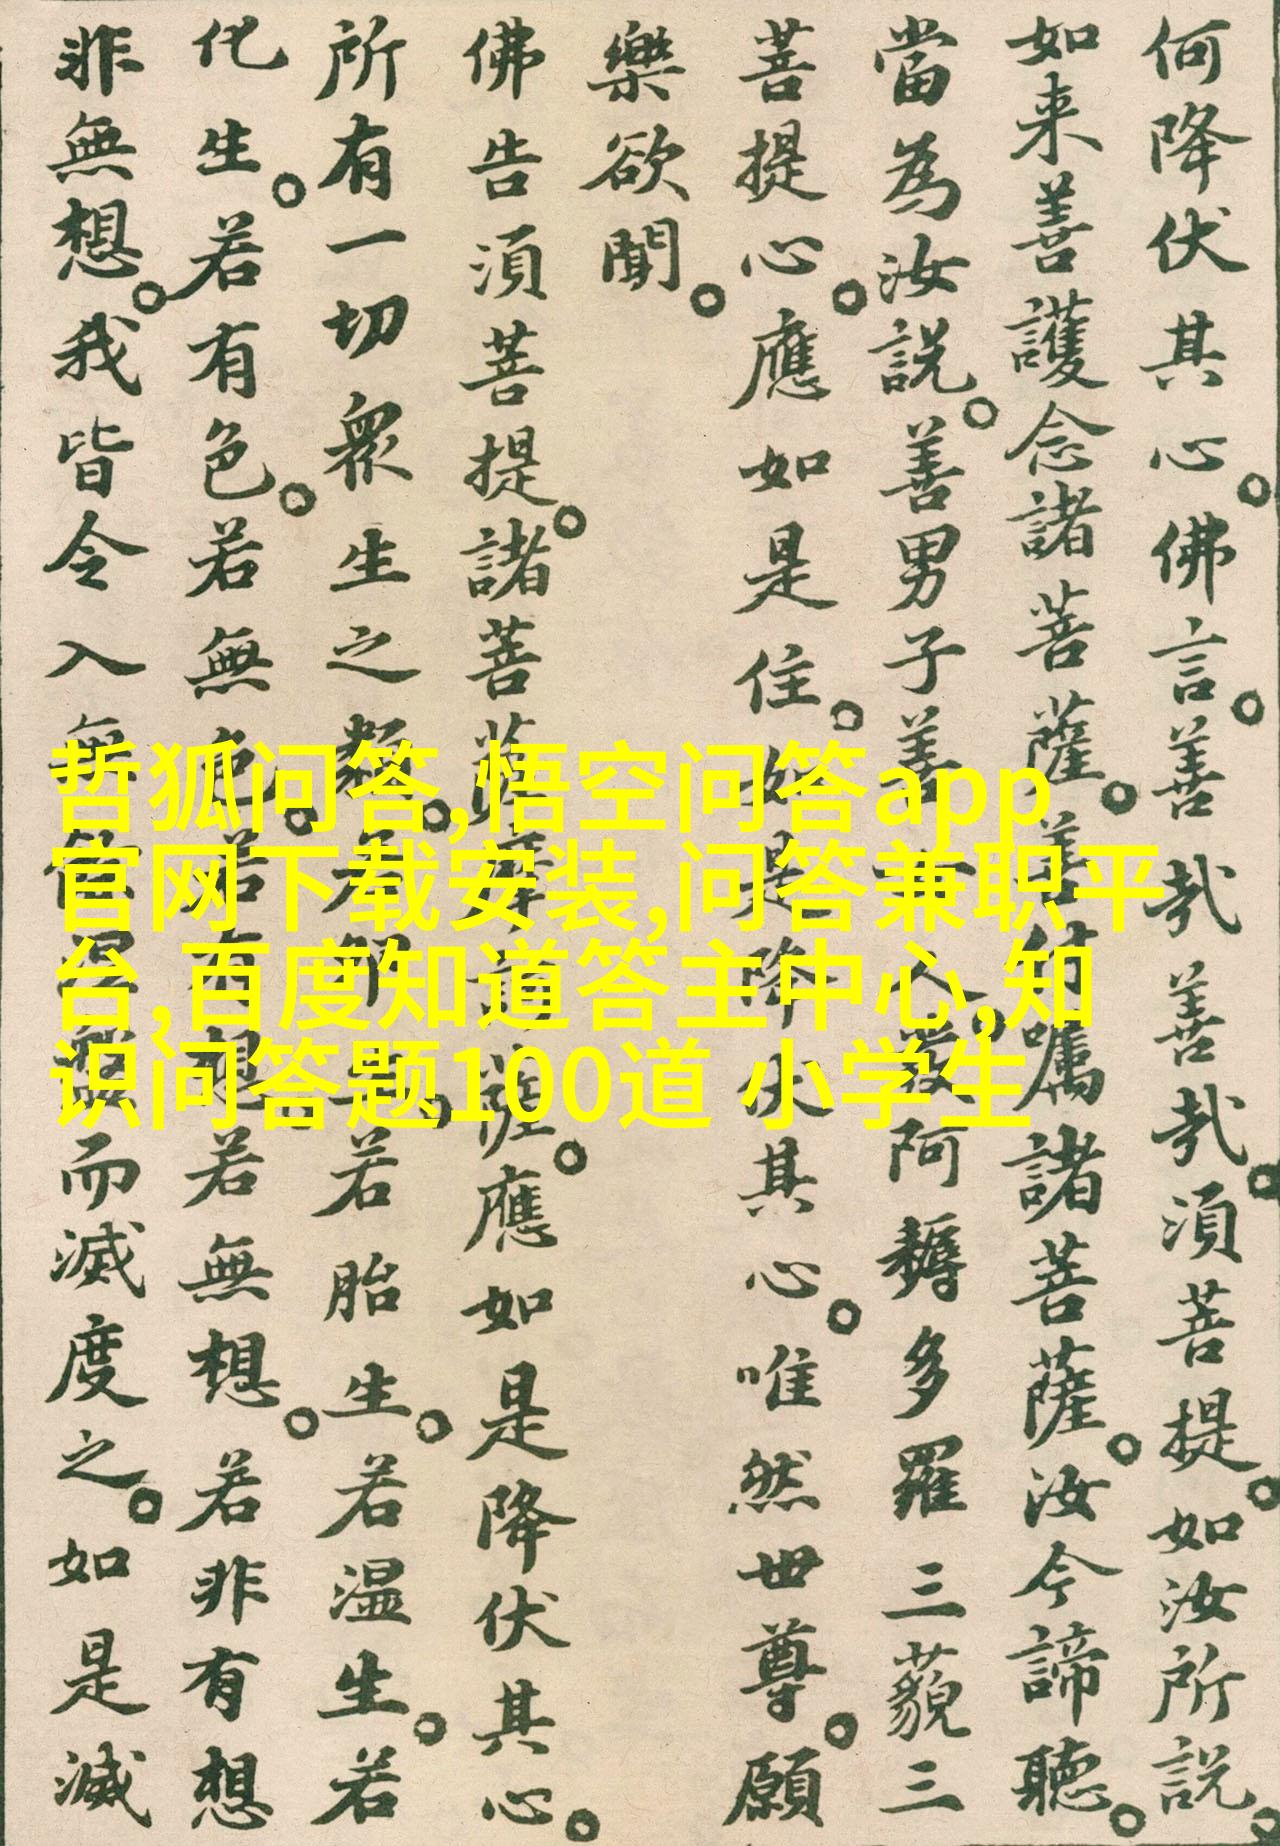 何降伏其心。佛言。善哉善哉。湏菩提。如汝所説。
如来善護念諸菩薩。善付嘱諸菩薩。汝今諦聽。
當為汝説。善男子善女人。發阿耨多羅三藐三
菩提心。應如是住。如是降伏其心。唯然世尊。願
樂欲聞。
佛告湏菩提。諸菩薩摩訶薩。應如是降伏其心。
所有一切衆生之類。若卵生。若胎生。若温生。若
化生。若有色。若無色。若有想。若無想。若非有想
非無想。我皆令入無餘涅槃而滅度之。如是滅
哲狐问答,悟空问答app
官网下载安装,问答兼职平
台,百度知道答主中心,知
识问答题100道 小学生